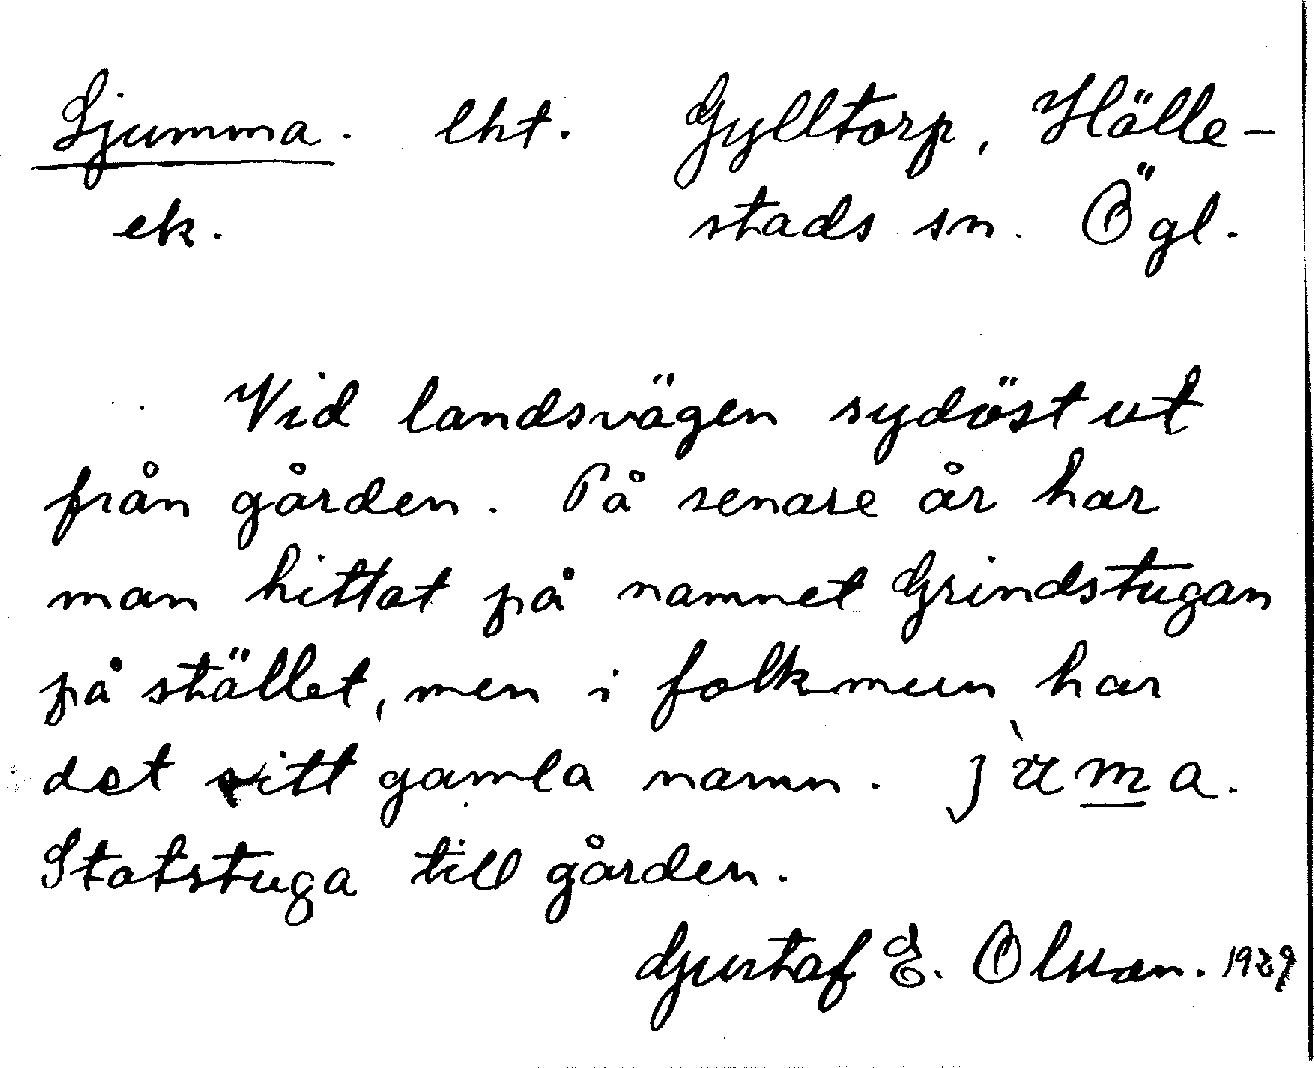 Ljumma. lht. Gylltorp, Hälle-
ek. stads sn. Ögl.
Vid landsvägen sydöst ut
från gården. På senare år har
man hittat på namnet Grindstugan
på stället, men i folkmun har
det sitt gamla namn. j̀uma.
Statstuga till gården.
Gustaf E. Olsson. 1929